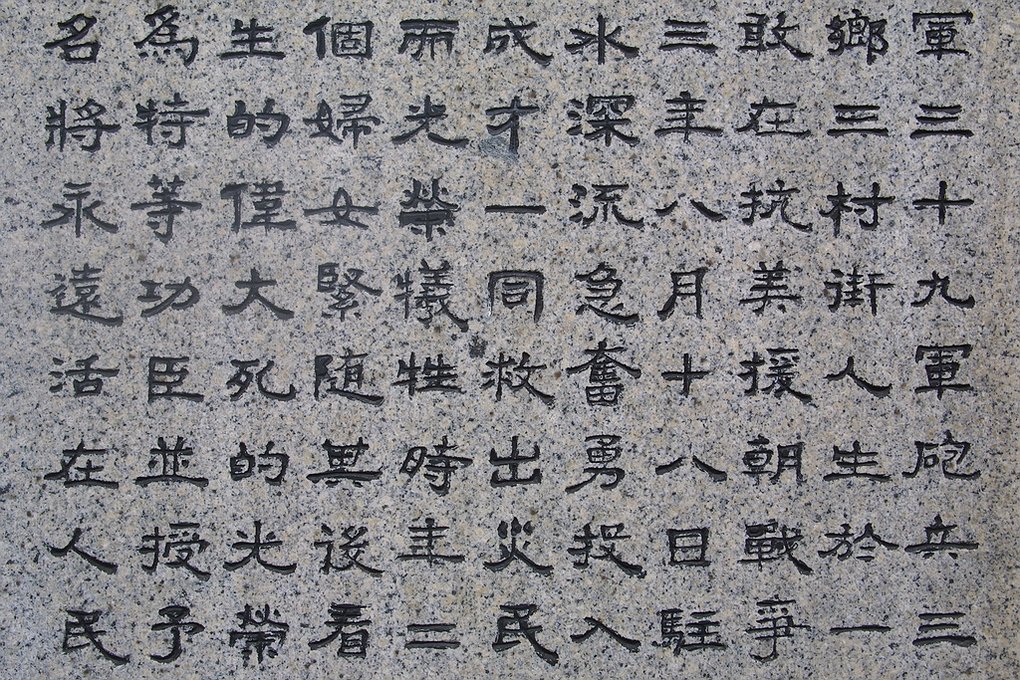 軍三十九軍砲兵三
鄉三村街人生於一
敢在抗美援朝戰爭
三年八月十八日駐
水深流急奮勇投入
成才一同救出災民
而光榮犧牲時年二
個婦女緊随其後看
生的偉大死的光榮
為特等功臣並授予
名將永遠活在人民